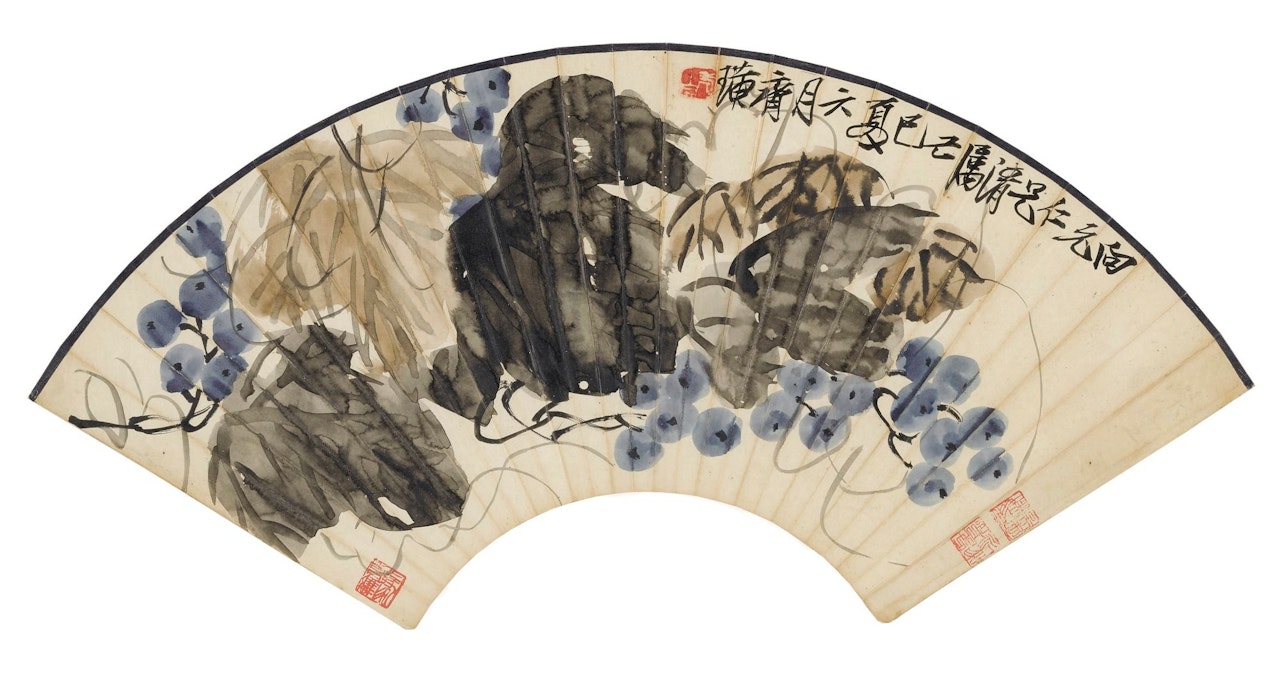 向元仁兄清屬己巳夏六月齊璜